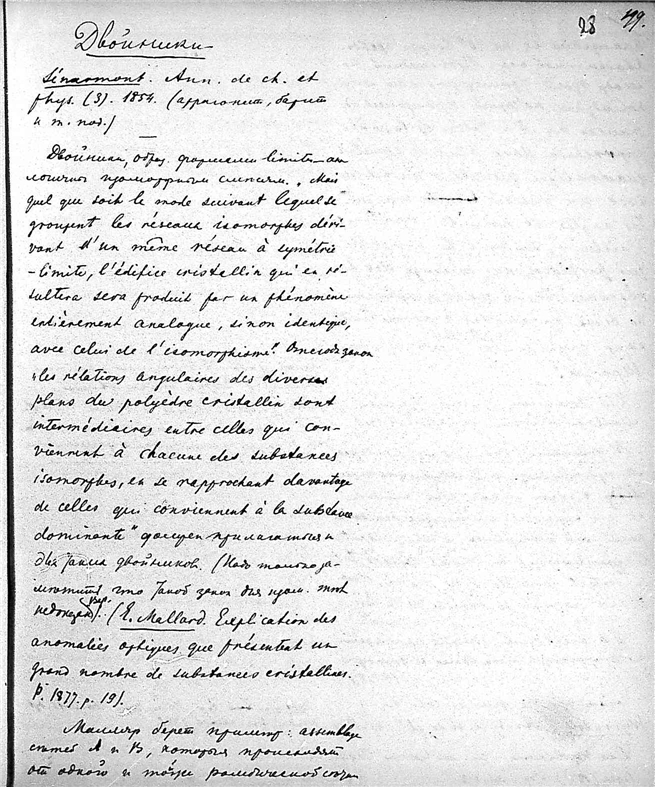 28 49.
Двойники
Sénarmont. Ann. de ch. et
phys. (3). 1854. (аррагонит, барит
и т. под.)
Двойники, образ. формами limite—ан
логичны изоморфным смесям. „Mais
quel que soit le mode suivant lequel se
groupent les réseaux isomorphes déri-
vant d'un même réseau à symétrie
-limite, l'édifice cristallin qui en ré-
sultera sera produit par un phénomène
entièrement analogue, sinon identique,
avec celui de l'isomorphisme". Отсюда закон
„les rélations angulaires des diverses
plans du polyèdre cristallin sont
intermédiaires entre celles qui con-
viennent à chacune des substances
isomorphes, en se rapprochant davantage
de celles qui conviennent à la substance
dominante" должен прилагаться и
для таких двойников. (Надо только за-
метить что такой закон для изом. тел
недоказан). (E. Mallard. Explication des
anomalies optiques que présentent un
grand nombre de substances cristallines.
P. 1877. p. 19).
Маллар берет пример: assemblage
сетей А и В, которыя происходят
от одной и той же ромбической сетки